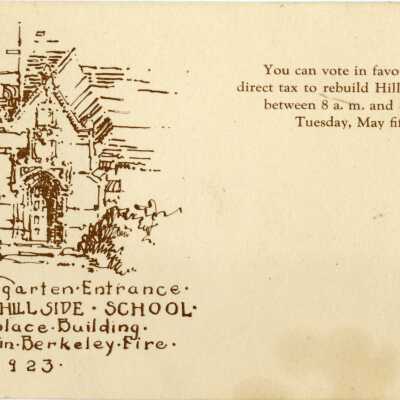 You can vote in favo
direct tax to rebuild Hill
between 8 a. m. and
Tuesday, May fif
garten·Entrance·
HILLSIDE·SCHOOL·
place·Building·
in·Berkeley·Fire·
923·